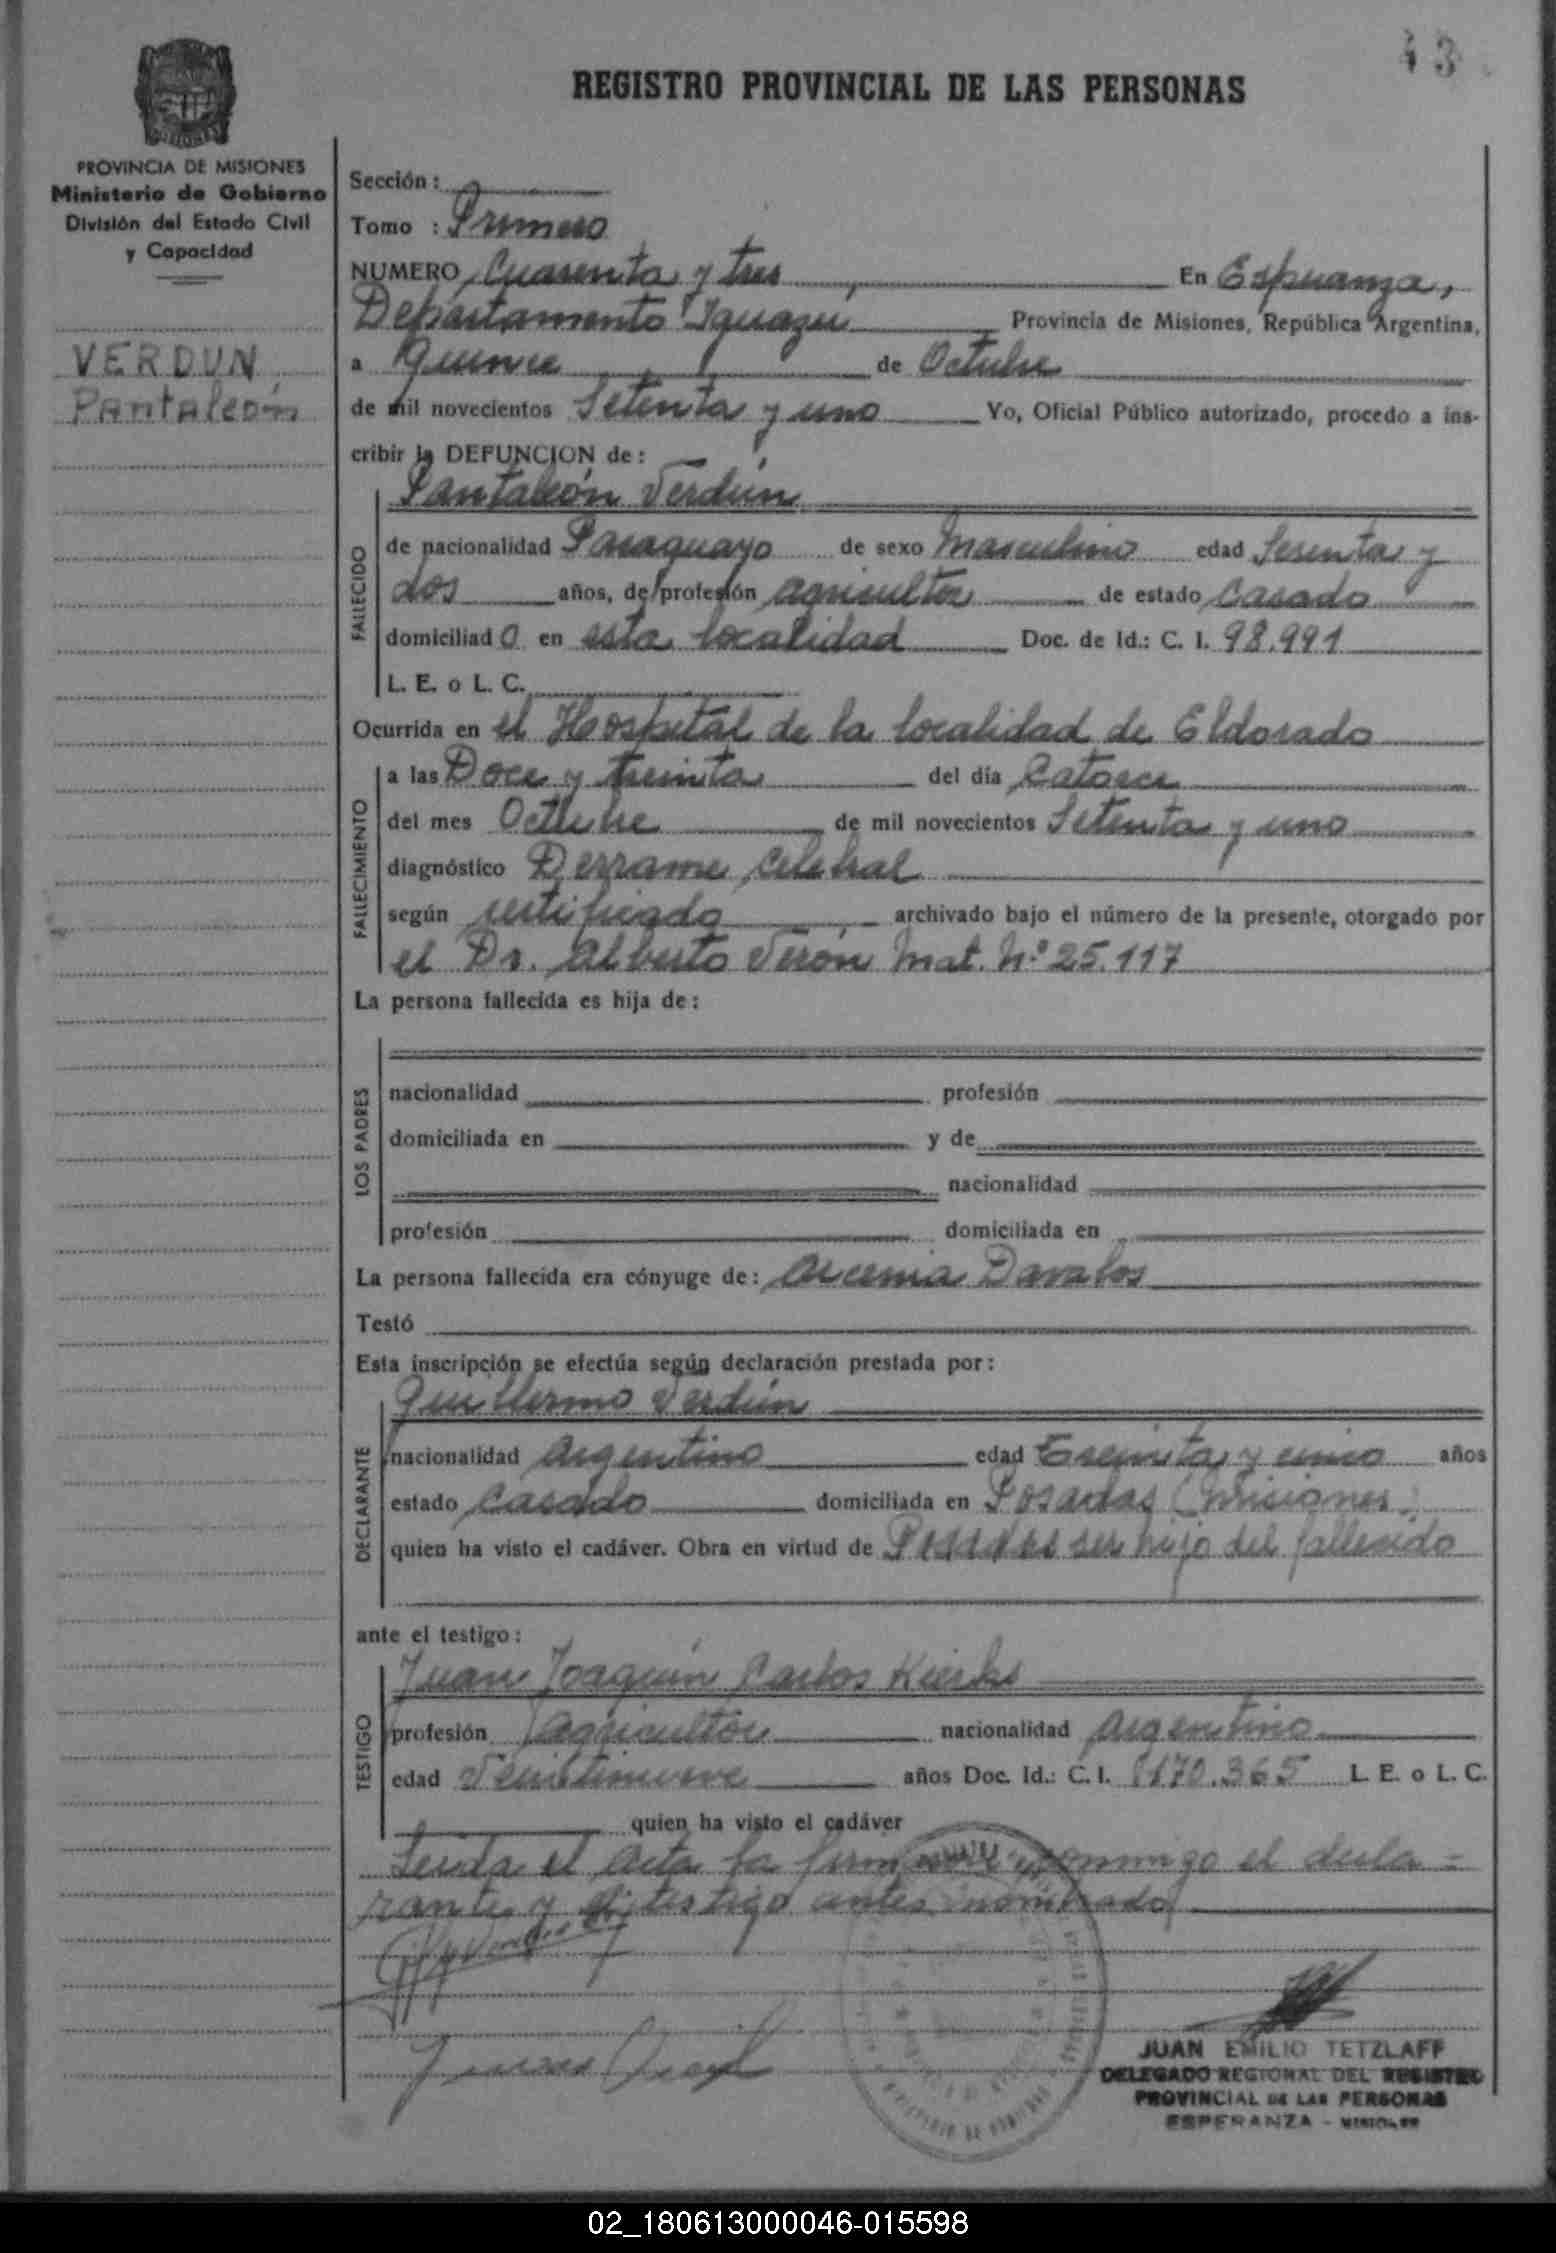 43
REGISTRO PROVINCIAL DE LAS PERSONAS
PROVINCIA DE MISIONES
Ministerio de Gobierno
División del Estado Civil
y Capacidad
VERDUN
Pantaleón
Sección:
Tomo : Primero
NUMERO Cuarenta y tres, En Esperanza,
Departamento Iguazu Provincia de Misiones, República Argentina,
a Quince de Octubre
de mil novecientos Setenta y uno Yo, Oficial Público autorizado, procedo a ins-
cribir la DEFUNCION de:
Pantaleón Verdún
FALLECIDO
de nacionalidad Paraguayo de sexo Masculino edad Sesenta y
dos años, de profesión agricultor de estado Casado
domiciliad o en esta localidad Doc. de Id.: C. I. 98.991
L. E. o L. C.
Ocurrida en el Hospital de la localidad de Eldorado
FALLECIMIENTO
a las Doce y treinta del día Catorce
del mes Octubre de mil novecientos Setenta y uno
diagnóstico Derrame Celebral
según certificado archivado bajo el número de la presente, otorgado por
el Dr. Alberto Verón Mat. Nº 25.117
La persona fallecida es hija de:
LOS PADRES
nacionalidad profesión
domiciliada en y de
nacionalidad
profesión domiciliada en
La persona fallecida era cónyuge de: Arcenia Davalos
Testó
Esta inscripción se efectúa según declaración prestada por:
Guillermo Verdún
DECLARANTE
nacionalidad Argentino edad Treinta y cinco años
estado Casado domiciliada en Posadas (Misiones)
quien ha visto el cadáver. Obra en virtud de ser hijo del fallecido
ante el testigo:
Juan Joaquín Carlos
TESTIGO
profesión agricultor nacionalidad Argentino
edad Veintinueve años Doc. Id.: C. I. 170.365 L. E. o L. C.
quien ha visto el cadáver
Leida el Acta la firman conmigo el decla-
rante y el testigo antes nombrado
JUAN EMILIO TETZLAFF
DELEGADO REGIONAL DEL REGISTRO
PROVINCIAL DE LAS PERSONAS
ESPERANZA - MISIONES
02_180613000046-015598